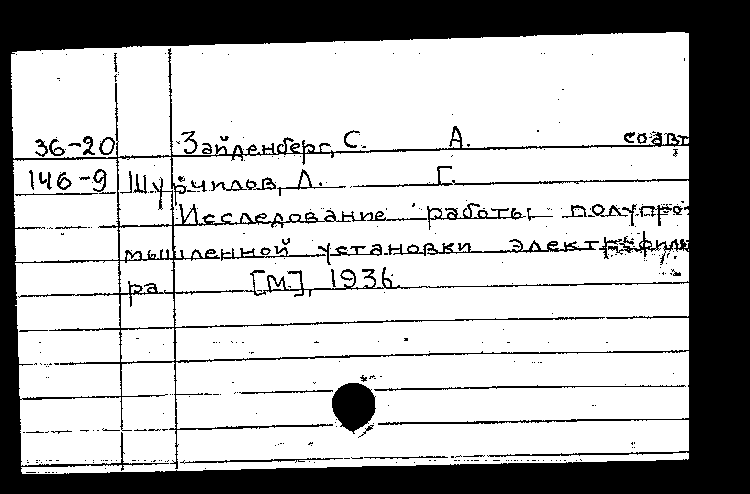 36-20 Зайденберг, С. А. соавт
146-9 Шу л. Г.
Исследование работы полупро-
мышленной установки электрофильт
ра [М.], 1936.